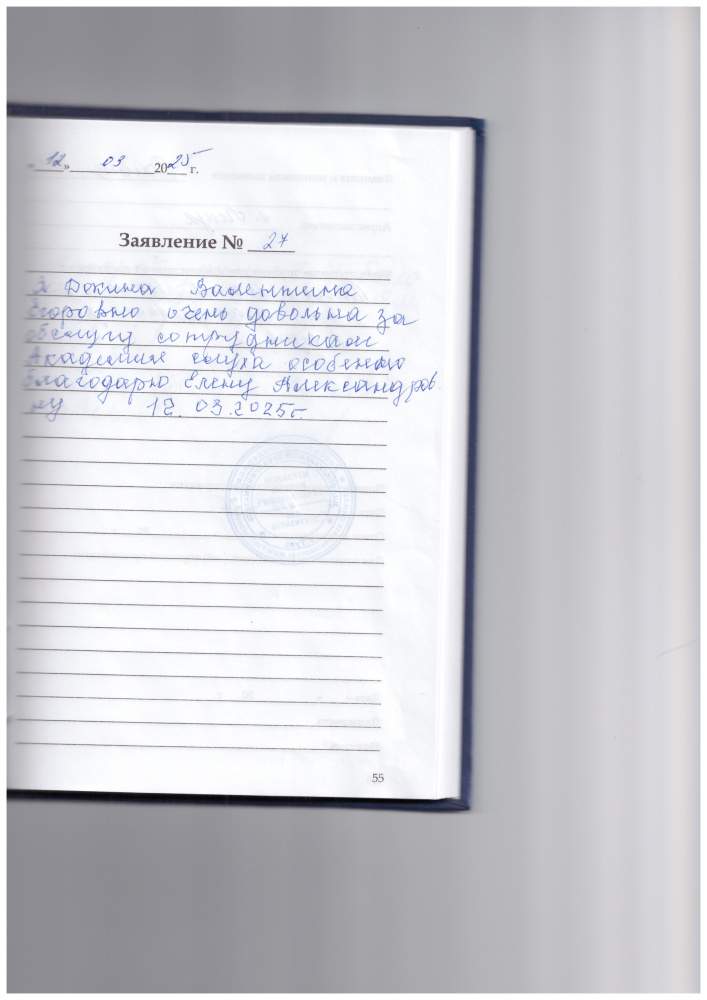 «12» 03 2025 г.
Заявление № 27
Я Докина Валентина
Егоровно очень довольна за
обслугу сотрудникам
Академия слуха особенно
благодарю Елену Александров
ну 12.03.2025г.
55